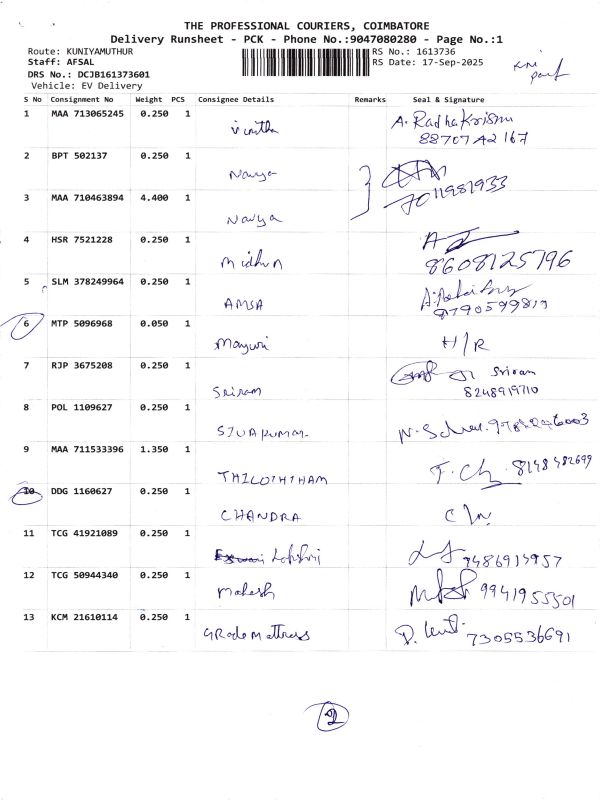 THE PROFESSIONAL COURIERS, COIMBATORE
Delivery Runsheet - PCK - Phone No.:9047080280 - Page No.:1
Route: KUNIYAMUTHUR
RS No.: 1613736
Staff: AFSAL
RS Date: 17-Sep-2025
DRS No.: DCJB161373601
Vehicle: EV Delivery
S No Consignment No Weight PCS Consignee Details Remarks Seal & Signature
1 MAA 713065245 0.250 1 Vinitha A. RadhaKrishna
88707 A2 167
2 BPT 502137 0.250 1 Navya
7011981933
3 MAA 710463894 4.400 1 Navya
4 HSR 7521228 0.250 1 Midhun
8608125796
5 SLM 378249964 0.250 1 AMSA
9790599819
6 MTP 5096968 0.050 1 Mayuri H/R
7 RJP 3675208 0.250 1 Sriram Sriram
8248919710
8 POL 1109627 0.250 1 SIVAKUMAR
9 MAA 711533396 1.350 1 THILOTHTHAM 8148482699
10 DDG 1160627 0.250 1 CHANDRA
11 TCG 41921089 0.250 1 Lakshmi
9486915957
12 TCG 50944340 0.250 1 Mahesh 9941955501
13 KCM 21610114 0.250 1 Grade Mattress
7305536691
2